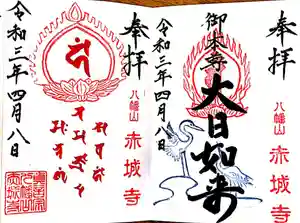 奉拝
八幡山
赤城寺
御本尊
大日如来
令和三年四月八日
奉拝
八幡山
赤城寺
令和三年四月八日